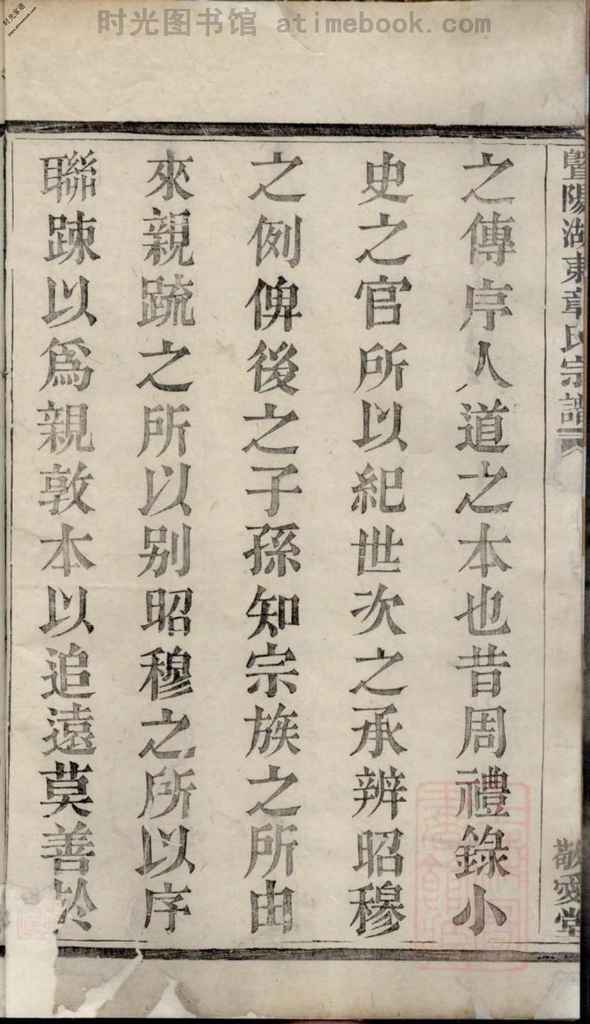 时光图书馆 atimebook.com
暨陽湖東章氏宗譜
敬愛堂
之傳序人道之本也昔周禮錄小
史之官所以紀世次之承辨昭穆
之例俾後之子孫知宗族之所由
來親疏之所以别昭穆之所以序
聯踈以為親敦本以追遠莫善於